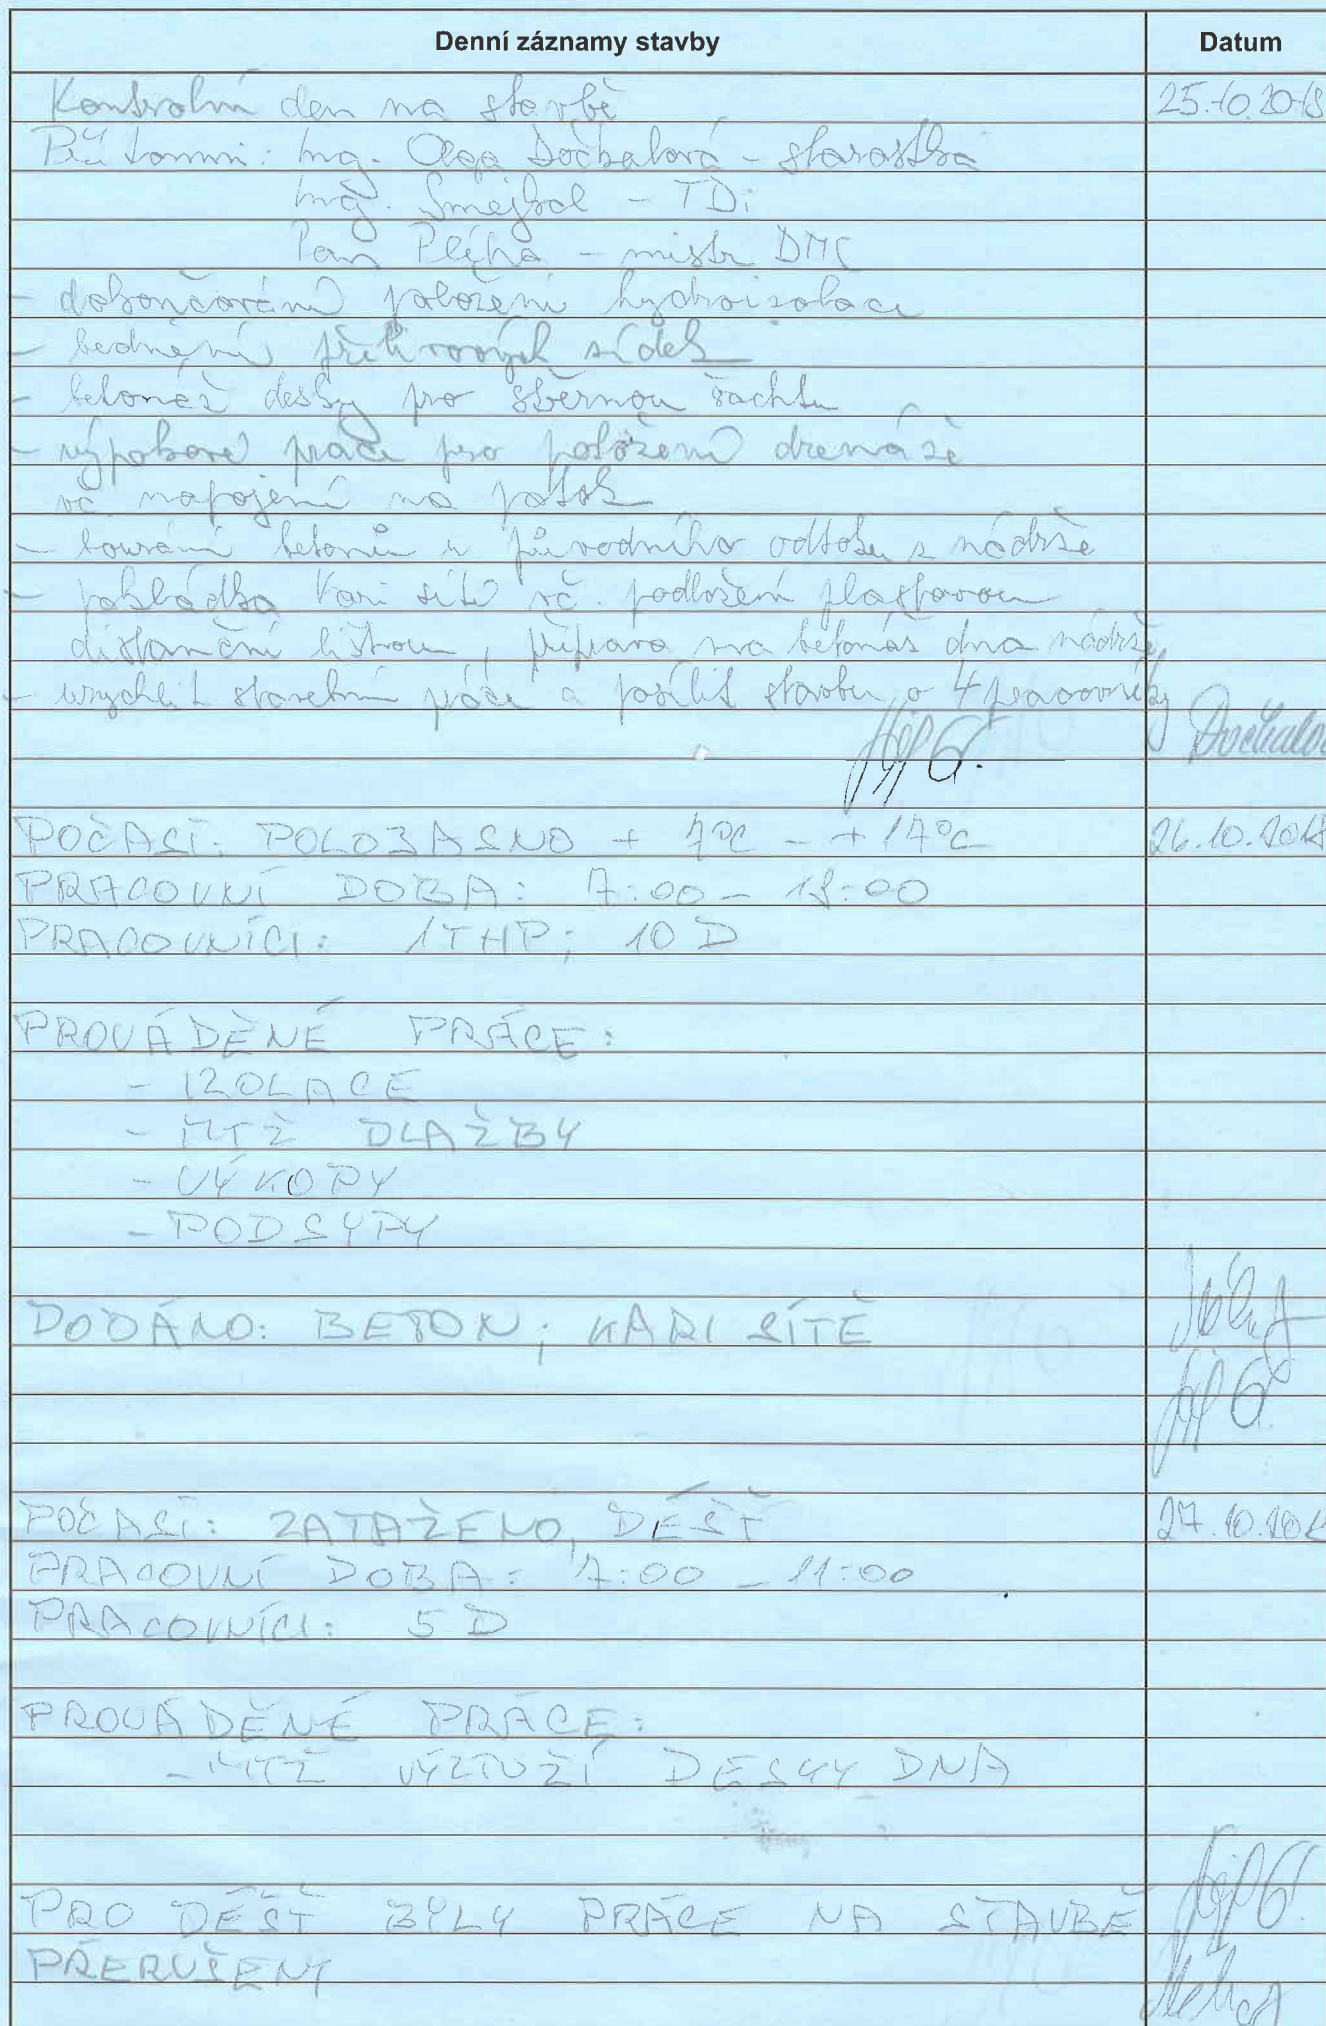 Denní záznamy stavby Datum
Kontrolní den na stavbě 25.10.2018
Přítomni: Ing. Olga Dočkalová - starostka
Ing. Smejkal - TDi
Pan Plíha - mistr DMC
- dokončování položení hydroizolace
- bednění přelivových zídek
- betonáž desky pro sběrnou šachtu
- výkopové práce pro položení drenáže
vč. napojení na potok
- bourání betonů u původního odtoku z nádrže
- pokládka Kari sítí vč. podložení plastovou
distanční lištou, příprava na betonáž dna nádrže,
- urychlit stavební práce a posílit stavbu o 4 pracovníky
POČASÍ: POLOJASNO + 7°C - + 17°C 26.10.2018
PRACOVNÍ DOBA: 7:00 - 18:00
PRACOVNÍCI: 1THP; 10 D
PROVÁDĚNÉ PRÁCE:
- IZOLACE
- MTŽ DLAŽBY
- VÝKOPY
- PODSYPY
DODÁNO: BETON; KARI SÍTĚ
POČASÍ: ZATAŽENO, DÉŠŤ 27.10.201
PRACOVNÍ DOBA: 7:00 - 11:00
PRACOVNÍCI: 5 D
PROVÁDĚNÉ PRÁCE:
- MTŽ VÝZTUŽÍ DESKY DNA
PRO DÉŠŤ BYLY PRÁCE NA STAVBĚ
PŘERUŠENY